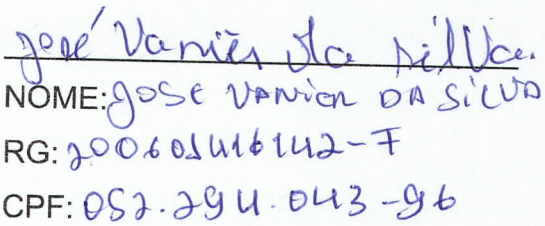 José Vanier da Silva.
NOME: JOSE VANIER DA SILVA
RG: 2006010416142-7
CPF: 052.294.043-96